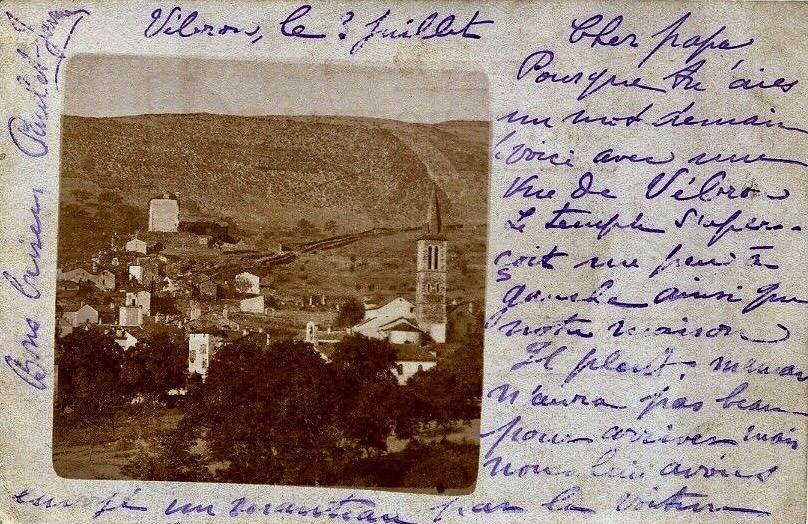 Vébron, le 3 juillet
Cher papa
Pour que tu aies
un mot demain
voici avec une
vue de Vébron
Le temple s'aper-
çoit un peu à
gauche ainsi que
notre maison
Il pleut, maman
n'aura pas beau
pour arriver mais
nous lui avons
envoyé un manteau par la voiture
Bons baisers Paul et